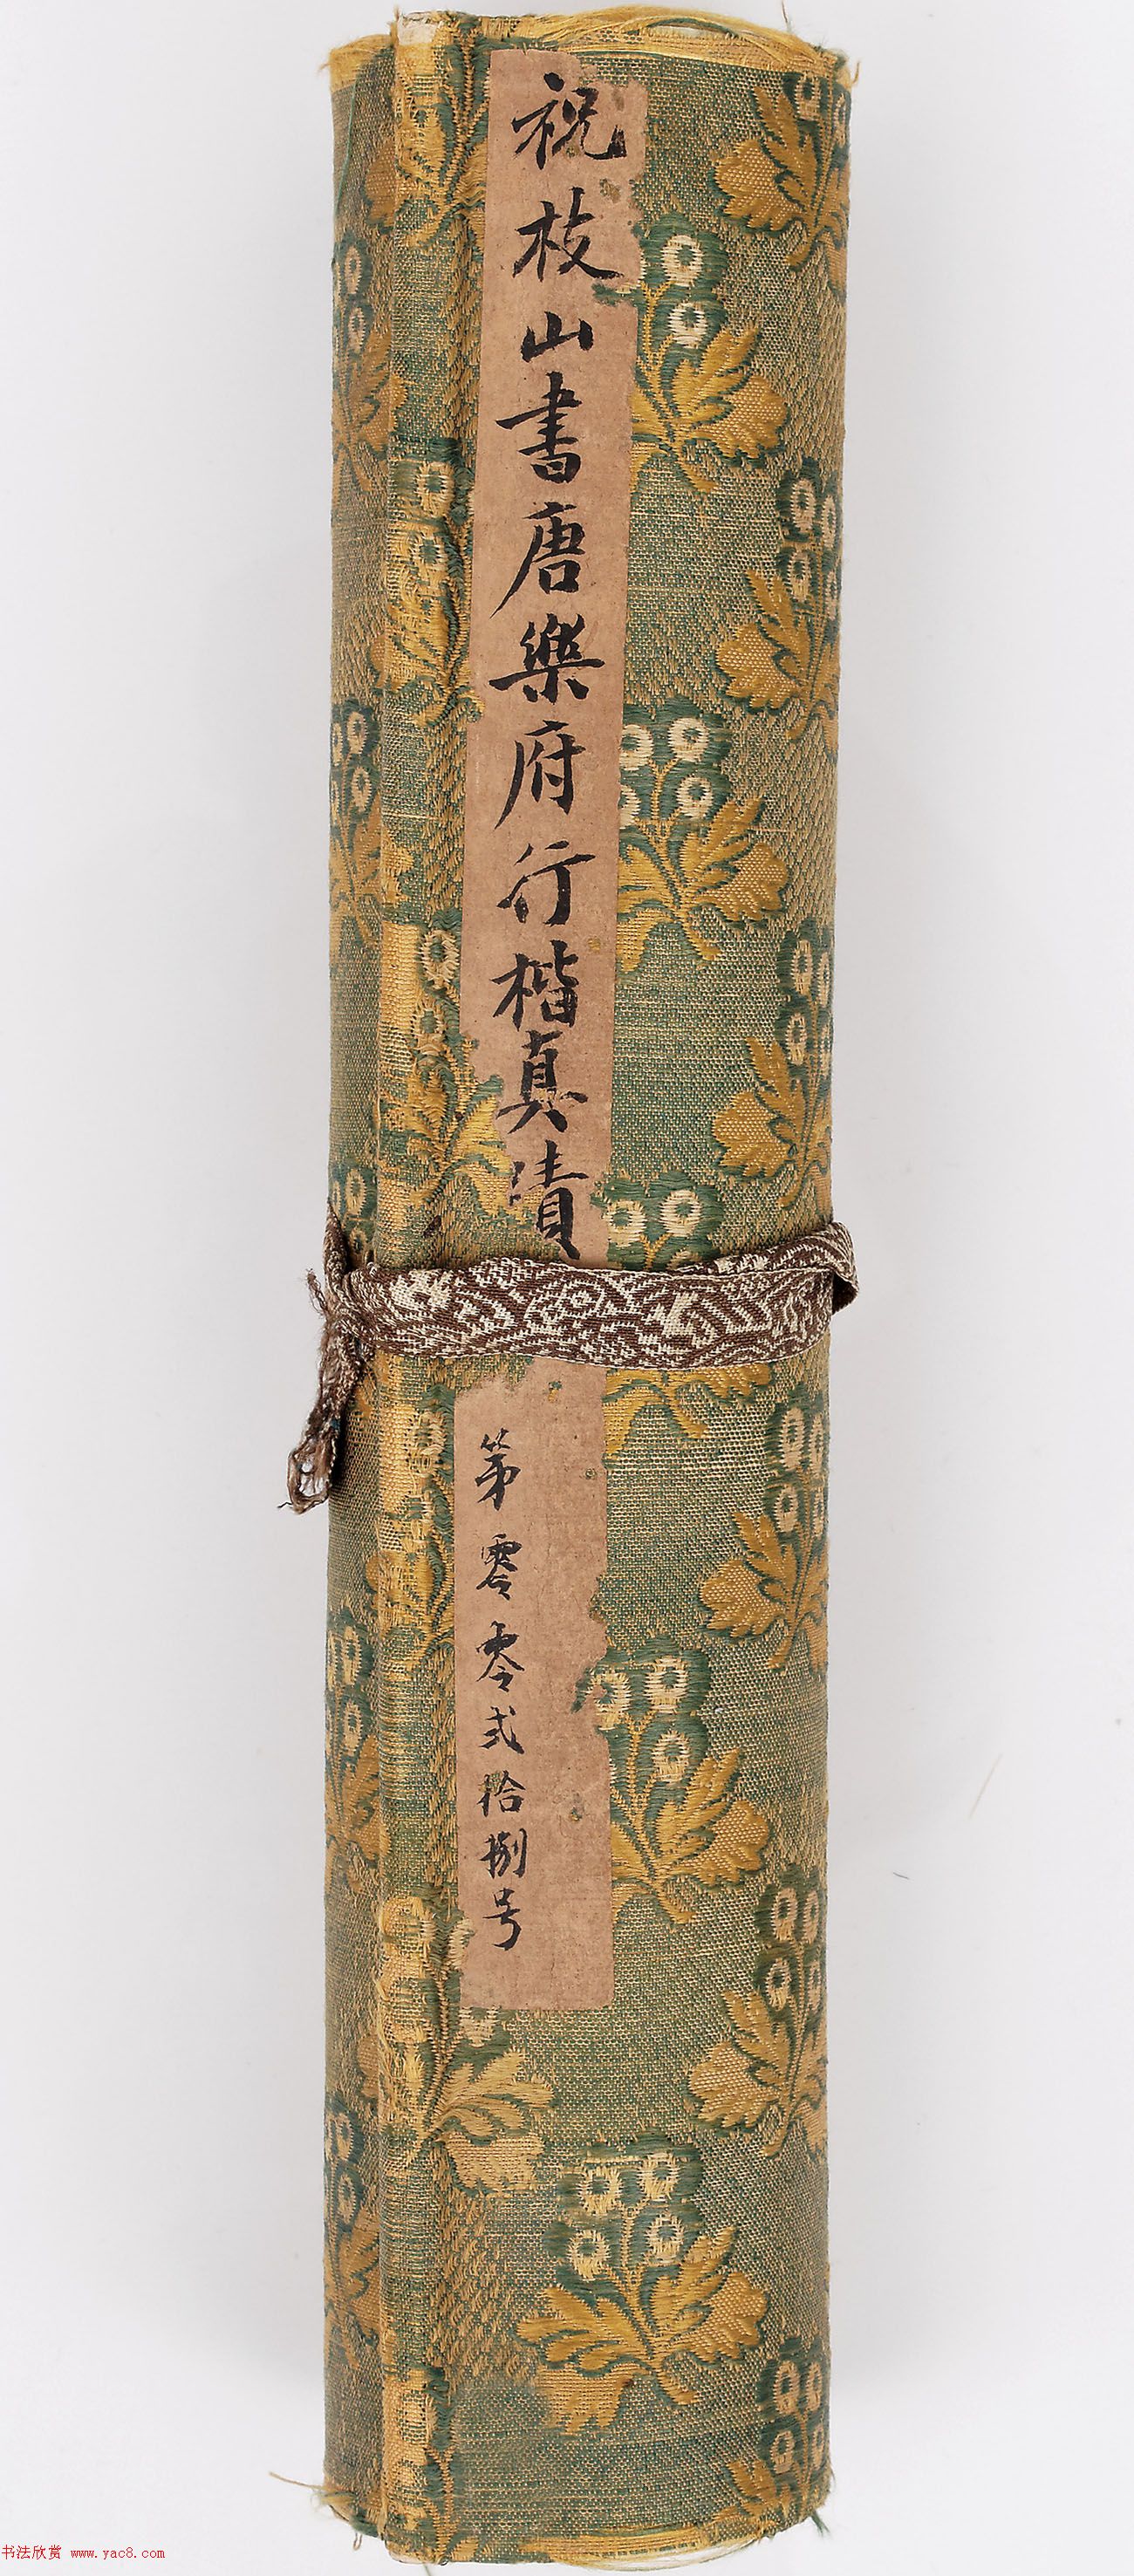 祝枝山書唐樂府行楷真漬
第零零弍拾捌号
书法欣赏 www.yac8.com